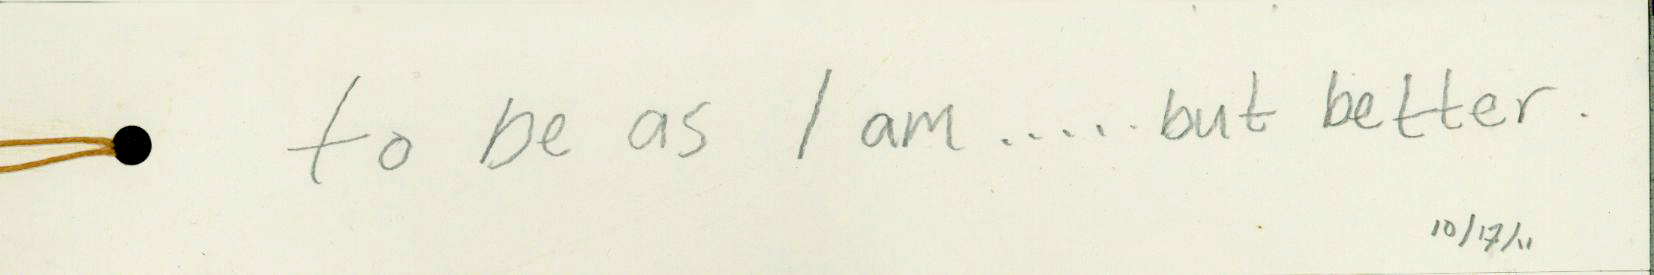 to be as I am..... but better.
10/17/11